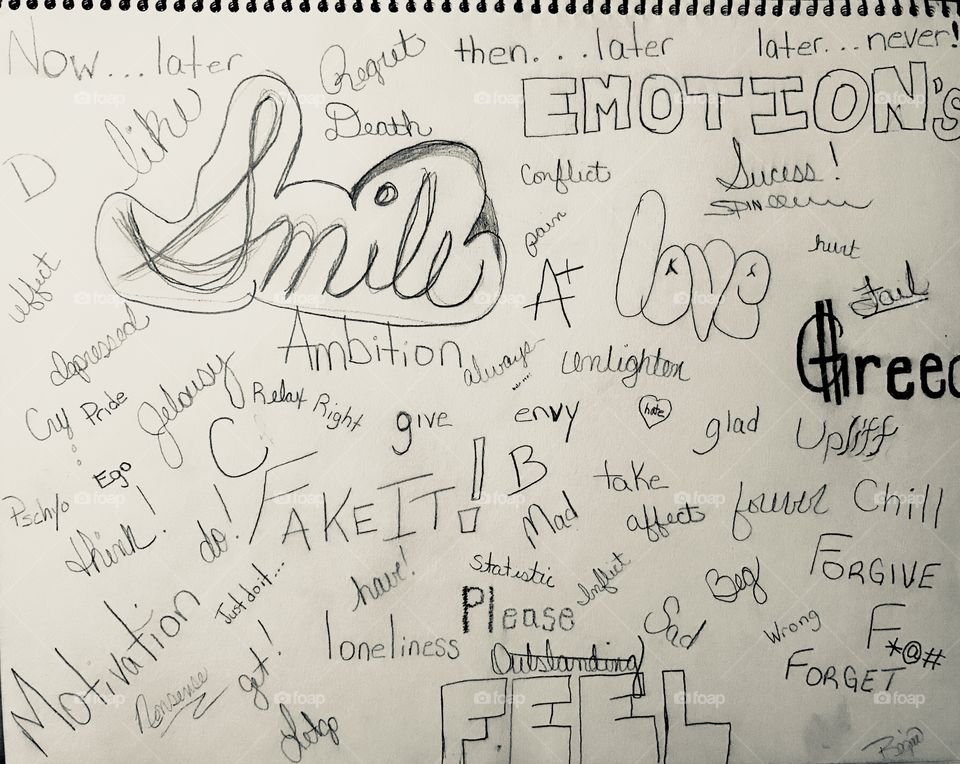 Now...later
Regret
then...later
later...never!
like
Death
EMOTION's
D
Smile
Conflict
Sucess!
SPIN
pain
love
hurt
effect
A+
Fail
depressed
Ambition
always
enlighten
Greed
Cry
Pride
Jelousy
Relax
Right
give
envy
hate
glad
Upliff
C
Ego
B
take
Pschyo
think!
do!
FAKE IT!
Mad
affects
Chill
Just do it...
have!
Statistic
Inflict
Beg
FORGIVE
Motivation
Please
Sad
Wrong
F*@#
loneliness
Outstanding
FORGET
Nonsense
get!
FEEL